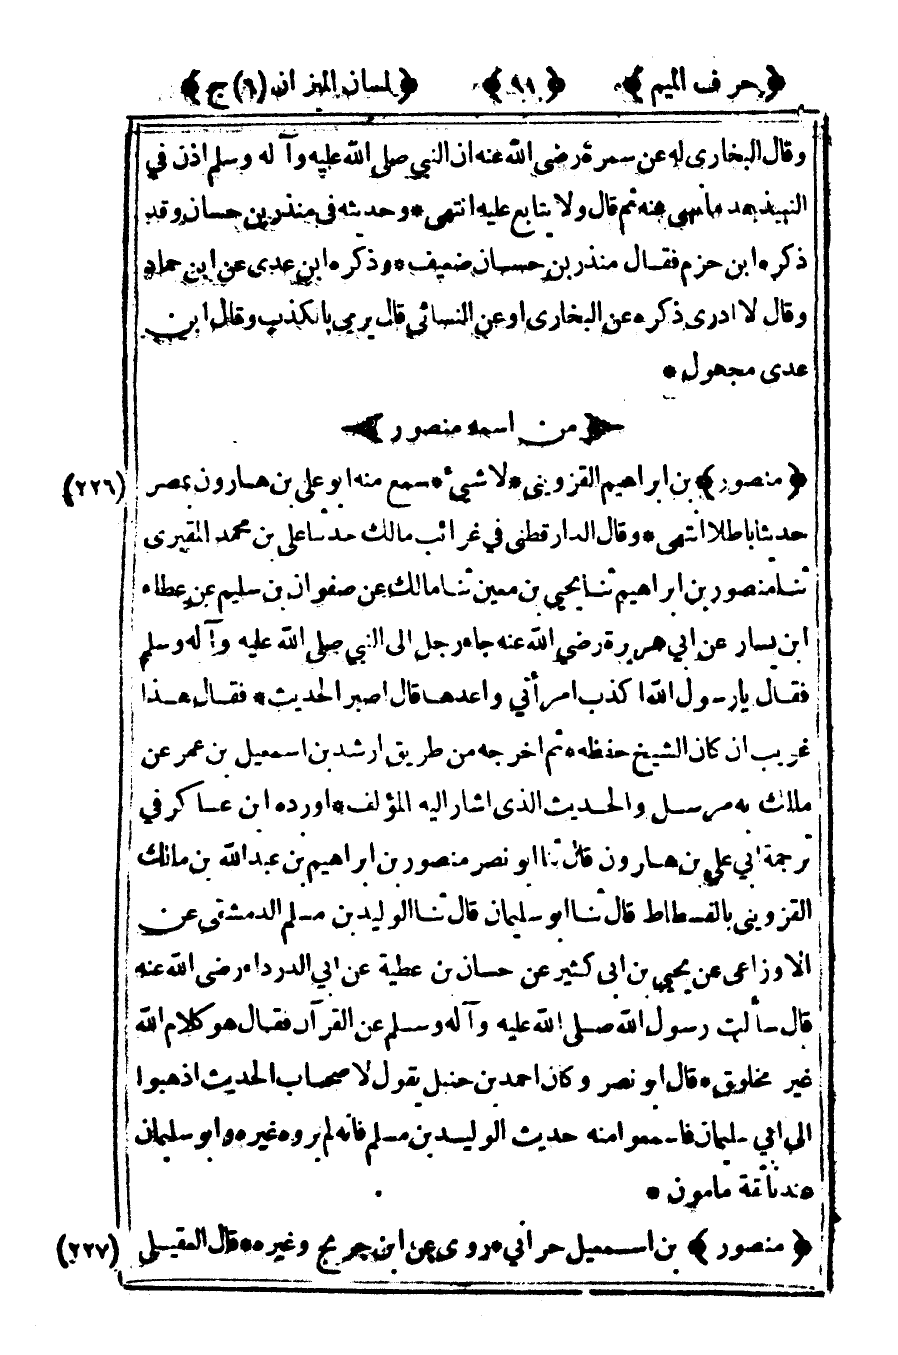 ﴿حرف الميم﴾ ﴿٩١﴾ ﴿لسان الميزان (٦) ج﴾
وقال البخارى له عن سمرة رضى الله عنه ان النبي صلى الله عليه وآله وسلم اذن في
النبيذ بعد ما نهى عنه ثم قال ولا يتابع عليه انتهى * وحديثه في منذر بن حسان وقد
ذكره ابن حزم فقال منذر بن حسان ضعيف * وذكره ابن عدى عن ابن حماد
وقال لا ادرى ذكره عن البخارى او عن النسائي قال يرمى بالكذب وقال ابن
عدى مجهول *
﴿من اسمه منصور﴾
﴿منصور﴾ بن ابراهيم القزوينى * لا شيئ * سمع منه ابو على بن هارون بمصر (٢٢٦)
حديثا باطلا انتهى * وقال الدارقطنى في غرائب مالك حدثنا على بن محمد المقيرى
ثنا منصور بن ابراهيم ثنا يحيى بن معين ثنا مالك عن صفوان بن سليم عن عطاء
ابن يسار عن ابي هريرة رضى الله عنه جاء رجل الى النبي صلى الله عليه وآله وسلم
فقال يا رسول الله اكذب امرأتي واعدها قال اصبر الحديث * فقال هذا
غريب ان كان الشيخ حفظه * ثم اخرجه من طريق ارشد بن اسمعيل بن عمر عن
مالك به مرسل والحديث الذى اشار اليه المؤلف * اورده ابن عساكر في
ترجمة ابي علي بن هارون قال ثنا ابو نصر منصور بن ابراهيم بن عبد الله بن مالك
القزوينى بالفسطاط قال ثنا ابو سليمان قال ثنا الوليد بن مسلم الدمشقى عن
الاوزاعى عن يحيى بن ابى كثير عن حسان بن عطية عن ابي الدرداء رضى الله عنه
قال سألت رسول الله صلى الله عليه وآله وسلم عن القرآن فقال هو كلام الله
غير مخلوق * قال ابو نصر وكان احمد بن حنبل يقول لاصحاب الحديث اذهبوا
الى ابي سليمان فاسمعوا منه حديث الوليد بن مسلم فانه لم يروه غيره * وابو سليمان
عندنا ثقة مامون *
﴿منصور﴾ بن اسمعيل حراني * روى عن ابن جريج وغيره * قال العقيلى (٢٢٧)